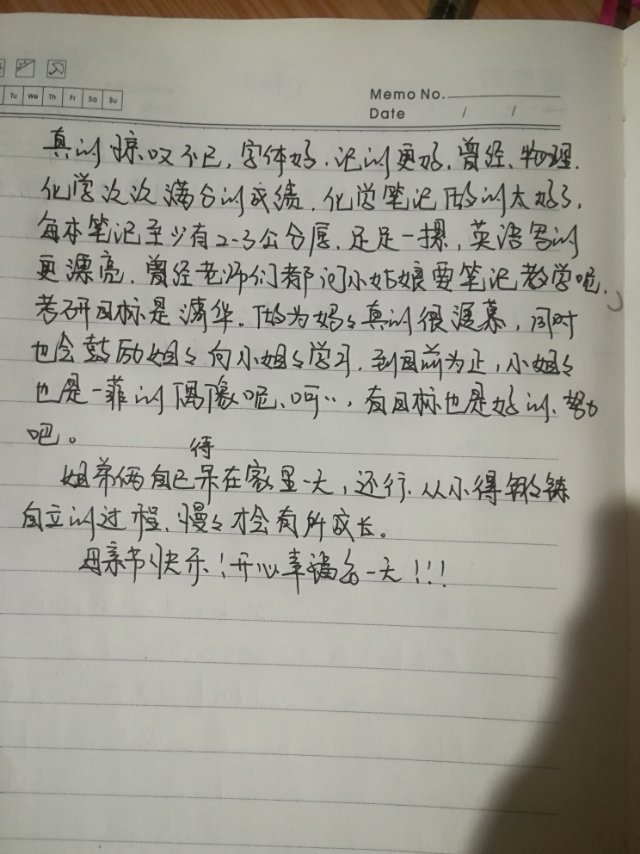 Tu We Th Fr Sa Su
Memo No.
Date / /
真的惊叹不已,字体好,记的更好,曾经,物理,
化学次次满分的成绩,化学笔记做的太好了,
每本笔记至少有2-3公分厚,足足一摞,英语写的
更漂亮,曾经老师们都问小姑娘要笔记教学呢,
考研目标是清华。做为妈々真的很羡慕,同时
也会鼓励姐々向小姐々学习,到目前为止,小姐々
也是一菲的偶像呢、呵‥,有目标也是好的、努力
吧。
待
姐弟俩自己呆在家里一天,还行、从小得锻炼
自立的过程、慢々才会有所成长。
母亲节快乐!开心幸福每一天!!!